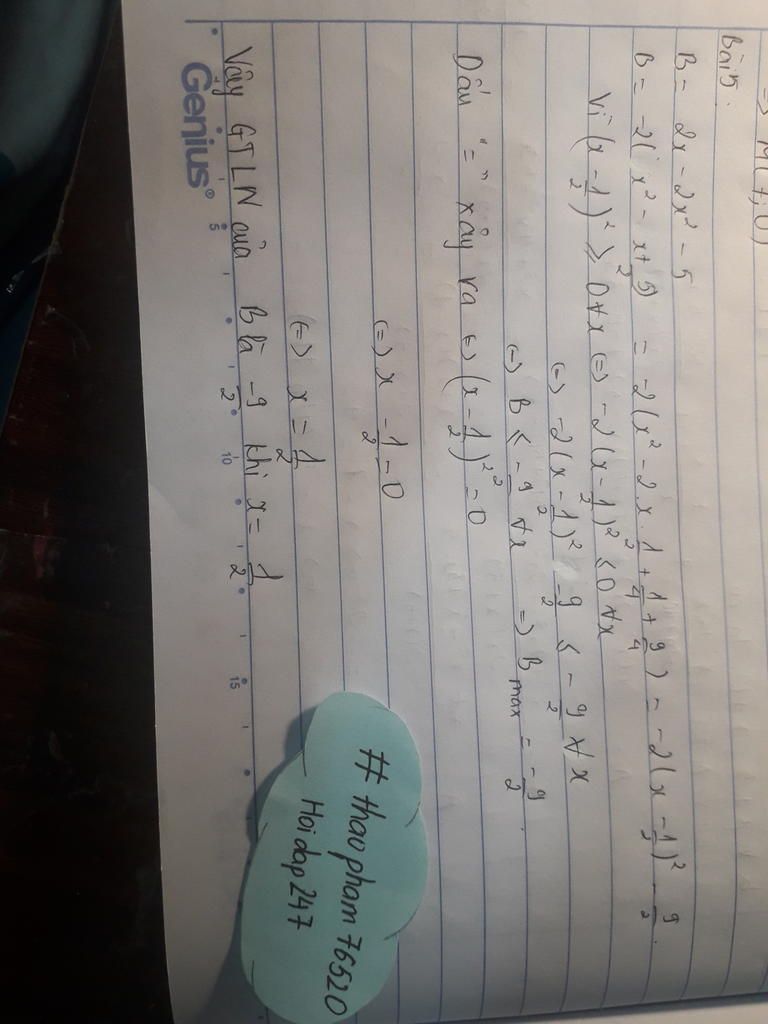 => M(7;0)
Bài 5:
B = 2x - 2x² - 5
B = -2(x² - x + 5/2) = -2(x² - 2x.1/2 + 1/4 + 9/4) = -2(x - 1/2)² - 9/2.
Vì (x - 1/2)² ≥ 0 ∀x (=) -2(x - 1/2)² ≤ 0 ∀x
(=) -2(x - 1/2)² - 9/2 ≤ -9/2 ∀x
(=) B ≤ -9/2 ∀x => B max = -9/2.
Dấu "=" xảy ra (=) (x - 1/2)² = 0
(=) x - 1/2 = 0
(=) x = 1/2
Vậy GTLN của B là -9/2 khi x = 1/2
Genius
5 10 15
# thaopham76520
Hoidap247